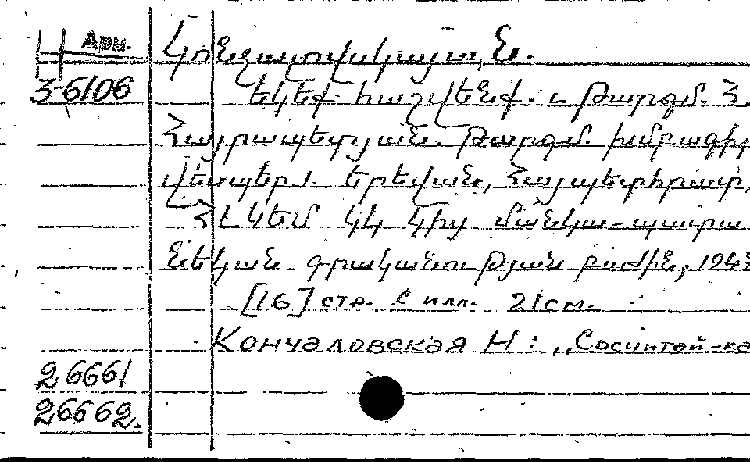 Ц Арм.
3-6106
Կոնչալովսկայա, Ն.
Եկեք հաշվենք. Թարգմ. Հ.
Հայրապետյան. Թարգմ. խմբագիր
Երևան, Հայպետհրատ,
ՀԼԿԵՄ ԿԿ կից մանկա-պատա
նեկան գրականության բաժին, 1943
[16] стр. с илл. 21 см.
Кончаловская Н: „Сосчитай-ка
26661
26662.